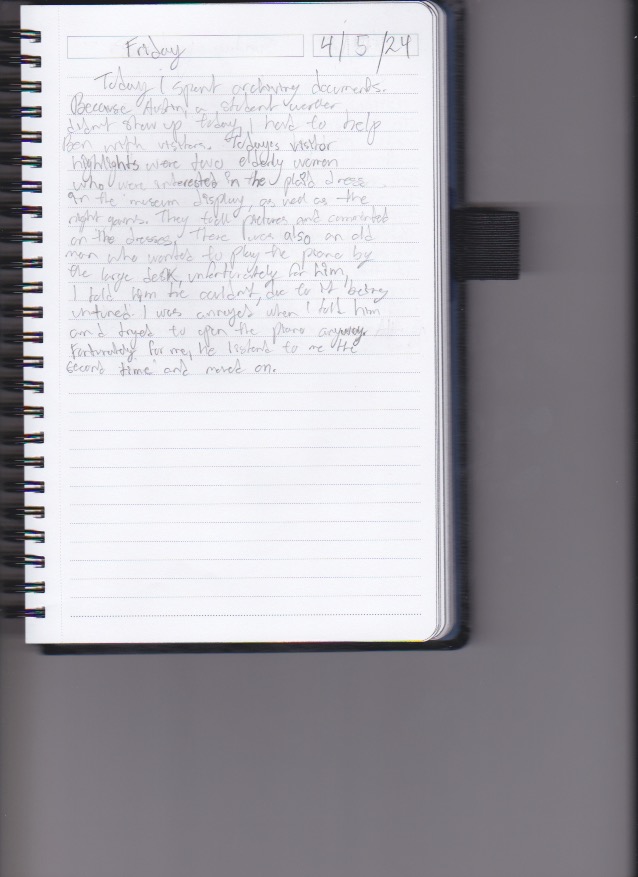 Friday 4/5/24
Today I spent archiving documents.
Because Austin, a student worker
didn't show up today, I had to help
Ben with visitors. Todays visitor
highlights were four elderly women
who were interested in the plaid dress
in the museum display, as well as the
night gowns. They took pictures and commented
on the dresses. There was also an old
man who wanted to play the piano by
the large desk, unfortunately for him,
I told him he couldn't, due to it being
untuned. I was annoyed when I told him
and tryed to open the piano anyway.
Fortunately for me, he listend to me the
second time and moved on.